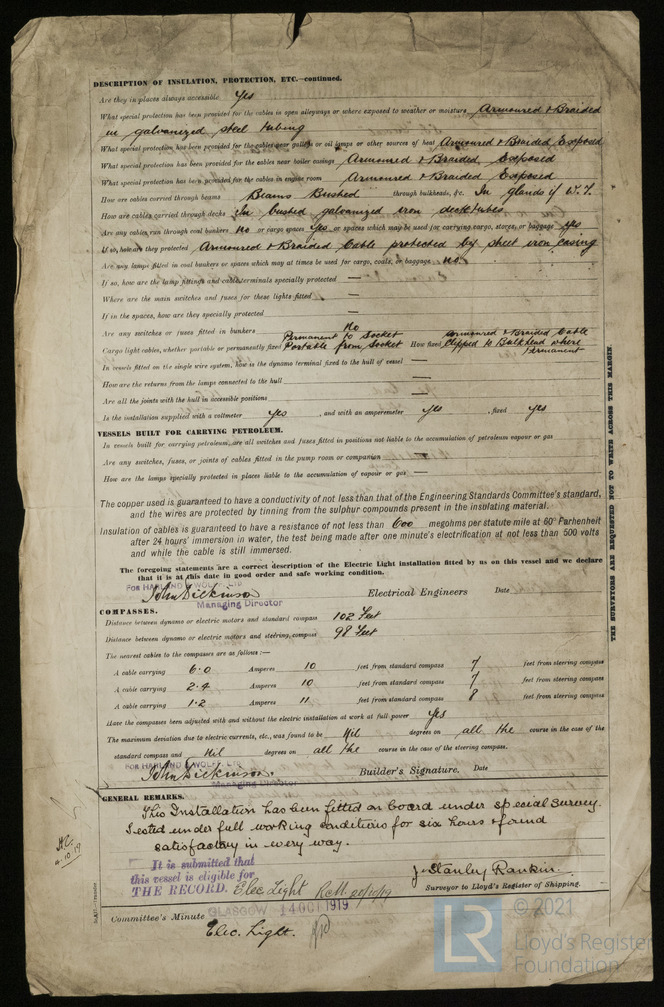 DESCRIPTION OF INSULATION, PROTECTION, ETC.—continued.
Are they in places always accessible Yes
What special protection has been provided for the cables in open alleyways or where exposed to weather or moisture Armoured & Braided
in galvanized steel tubing
What special protection has been provided for the cables near galleys or oil lamps or other sources of heat Armoured & Braided Exposed
What special protection has been provided for the cables near boiler casings Armoured & Braided, Exposed
What special protection has been provided for the cables in engine room Armoured & Braided Exposed
How are cables carried through beams Beams Bushed through bulkheads, &c. In glands if W.T.
How are cables carried through decks In bushed galvanized iron deck tubes
Are any cables run through coal bunkers No or cargo spaces Yes or spaces which may be used for carrying cargo, stores, or baggage Yes
If so, how are they protected Armoured & Braided Cable protected by sheet iron casing
Are any lamps fitted in coal bunkers or spaces which may at times be used for cargo, coals, or baggage no.
If so, how are the lamp fittings and cable terminals specially protected —
Where are the main switches and fuses for these lights fitted —
If in the spaces, how are they specially protected —
Are any switches or fuses fitted in bunkers No
Cargo light cables, whether portable or permanently fixed Permanent to Socket Portable from Socket How fixed Armoured & Braided Cable Clipped to Bulkhead where Permanent
In vessels fitted on the single wire system, how is the dynamo terminal fixed to the hull of vessel —
How are the returns from the lamps connected to the hull —
Are all the joints with the hull in accessible positions —
Is the installation supplied with a voltmeter Yes , and with an amperemeter Yes , fixed Yes
VESSELS BUILT FOR CARRYING PETROLEUM.
In vessels built for carrying petroleum, are all switches and fuses fitted in positions not liable to the accumulation of petroleum vapour or gas —
Are any switches, fuses, or joints of cables fitted in the pump room or companion —
How are the lamps specially protected in places liable to the accumulation of vapour or gas —
The copper used is guaranteed to have a conductivity of not less than that of the Engineering Standards Committee's standard,
and the wires are protected by tinning from the sulphur compounds present in the insulating material.
Insulation of cables is guaranteed to have a resistance of not less than 600 megohms per statute mile at 60° Farhenheit
after 24 hours' immersion in water, the test being made after one minute's electrification at not less than 500 volts
and while the cable is still immersed.
The foregoing statements are a correct description of the Electric Light installation fitted by us on this vessel and we declare
that it is at this date in good order and safe working condition.
FOR HARLAND & WOLFF, LTD
John Dickinson Electrical Engineers Date
Managing Director
COMPASSES.
Distance between dynamo or electric motors and standard compass 102 Feet
Distance between dynamo or electric motors and steering compass 98 Feet
The nearest cables to the compasses are as follows:—
A cable carrying 6.0 Amperes 10 feet from standard compass 7 feet from steering compass
A cable carrying 2.4 Amperes 10 feet from standard compass 7 feet from steering compass
A cable carrying 1.2 Amperes 11 feet from standard compass 8 feet from steering compass
Have the compasses been adjusted with and without the electric installation at work at full power Yes
The maximum deviation due to electric currents, etc., was found to be Nil degrees on all the course in the case of the
standard compass and Nil degrees on all the course in the case of the steering compass.
FOR HARLAND & WOLFF, LTD
John Dickinson. Builder's Signature. Date
Managing Director
GENERAL REMARKS.
This Installation has been fitted on board under special survey.
Tested under full working conditions for six hours & found
satisfactory in every way.
It is submitted that
this vessel is eligible for
THE RECORD. Elec Light
J. Stanley Rankin
Surveyor to Lloyd's Register of Shipping.
GLASGOW 14 OCT 1919
Committee's Minute
Elec. Light.
THE SURVEYORS ARE REQUESTED NOT TO WRITE ACROSS THIS MARGIN.
LR
© 2021
Lloyd's Register
Foundation